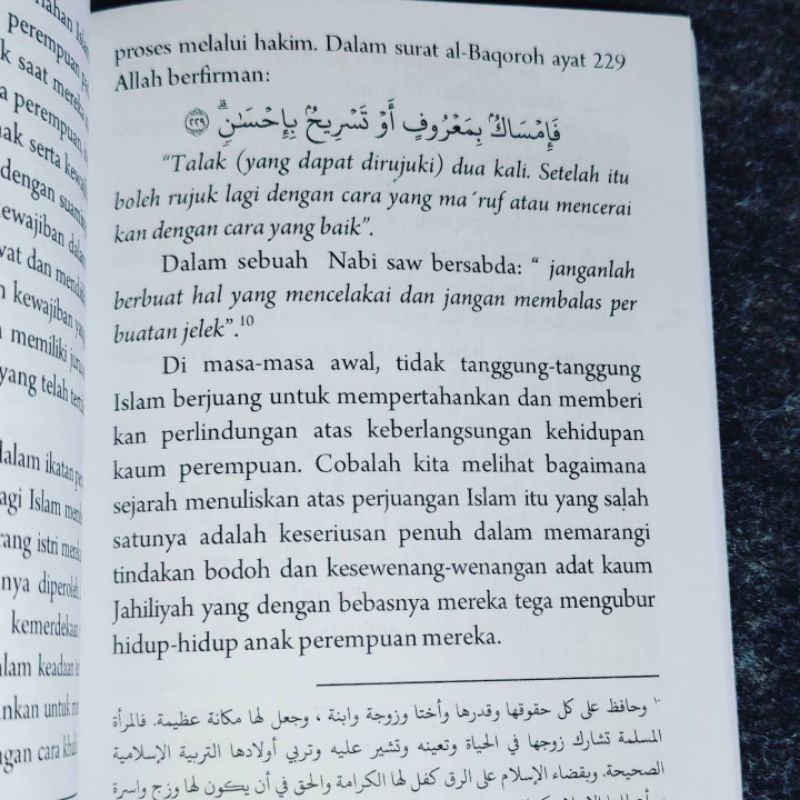 perempuan
saat
perempuan,
serta
dengan
dan
kewajiban
memiliki
yang telah
dalam ikatan
Islam
istri
kemerdekaan
dalam keadaan
untuk
cara
proses melalui hakim. Dalam surat al-Baqoroh ayat 229
Allah berfirman:
فَإِمْسَاكٌۢ بِمَعْرُوفٍ أَوْ تَسْرِيحٌۢ بِإِحْسَٰنٍۗ ﴿٢٢٩﴾
“Talak (yang dapat dirujuki) dua kali. Setelah itu
boleh rujuk lagi dengan cara yang ma´ruf atau mencerai
kan dengan cara yang baik”.
Dalam sebuah Nabi saw bersabda: “ janganlah
berbuat hal yang mencelakai dan jangan membalas per
buatan jelek”.10
Di masa-masa awal, tidak tanggung-tanggung
Islam berjuang untuk mempertahankan dan memberi
kan perlindungan atas keberlangsungan kehidupan
kaum perempuan. Cobalah kita melihat bagaimana
sejarah menuliskan atas perjuangan Islam itu yang salah
satunya adalah keseriusan penuh dalam memarangi
tindakan bodoh dan kesewenang-wenangan adat kaum
Jahiliyah yang dengan bebasnya mereka tega mengubur
hidup-hidup anak perempuan mereka.
١٠ وحافظ على كل حقوقها وقدرها وأختا وزوجة وابنة ، وجعل لها مكانة عظيمة. فالمرأة
المسلمة تشارك زوجها في الحياة وتعينه وتشير عليه وتربي أولادها التربية الإسلامية
الصحيحة. وبقضاء الإسلام على الرق كفل لها الكرامة والحق في أن يكون لها وزج واسرة